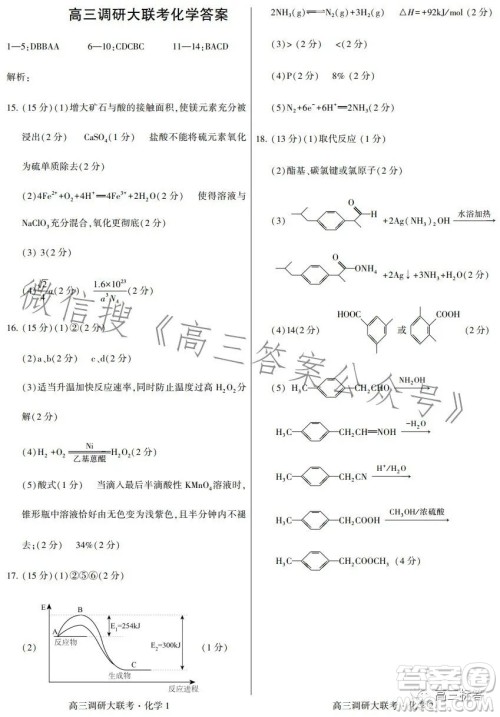 高三调研大联考化学答案
1—5:DBBAA 6—10:CDCBC 11—14:BACD
解析:
15.(15分)(1)增大矿石与酸的接触面积,使镁元素充分被
浸出(2分) CaSO₄(1分) 盐酸不能将硫元素氧化
为硫单质除去(2分)
(2)4Fe²⁺+O₂+4H⁺═4Fe³⁺+2H₂O(2分) 使得溶液与
NaClO₃充分混合,氧化更彻底(2分)
(3) 3(2分)
(2分)
16.(15分)(1)②(2分)
(2)a、b(2分) c、d(2分)
(3)适当升温加快反应速率,同时防止温度过高H₂O₂分
解(2分)
(4)H₂+O₂ Ni 乙基蒽醌 H₂O₂(2分)
(5)酸式(1分) 当滴入最后半滴酸性KMnO₄溶液时,
锥形瓶中溶液恰好由无色变为浅紫色,且半分钟内不褪
去;(2分) 34%(2分)
17.(15分)(1)②⑤⑥(2分)
(2)
E
B
A
反应物
E₁=254kJ
E₂=300kJ
(1分)
C
生成物
反应进程
高三调研大联考·化学1
2NH₃(g)⇌N₂(g)+3H₂(g) △H=+92kJ/mol(2分)
(3)>(2分) <(2分)
(4)P(2分) 8%(2分)
(5)N₂+6e⁻+6H⁺═2NH₃(2分)
18.(13分)(1)取代反应(1分)
(2)酯基、碳氯键或氯原子(2分)
(3)
O
H
+2Ag(NH₃)₂OH
水浴加热
O
ONH₄
+2Ag↓+3NH₃+H₂O(2分)
(4)14(2分)
COOH
或
COOH
(2分)
(5)
H₃C
CH₂CHO
NH₂OH
H₃C
CH₂CH=NOH
−H₂O
H₃C
CH₂CN
H⁺/H₂O
H₃C
CH₂COOH
CH₃OH/浓硫酸
H₃C
CH₂COOCH₃(4分)
高三调研大联考·化学
微信搜《高三答案公众号》